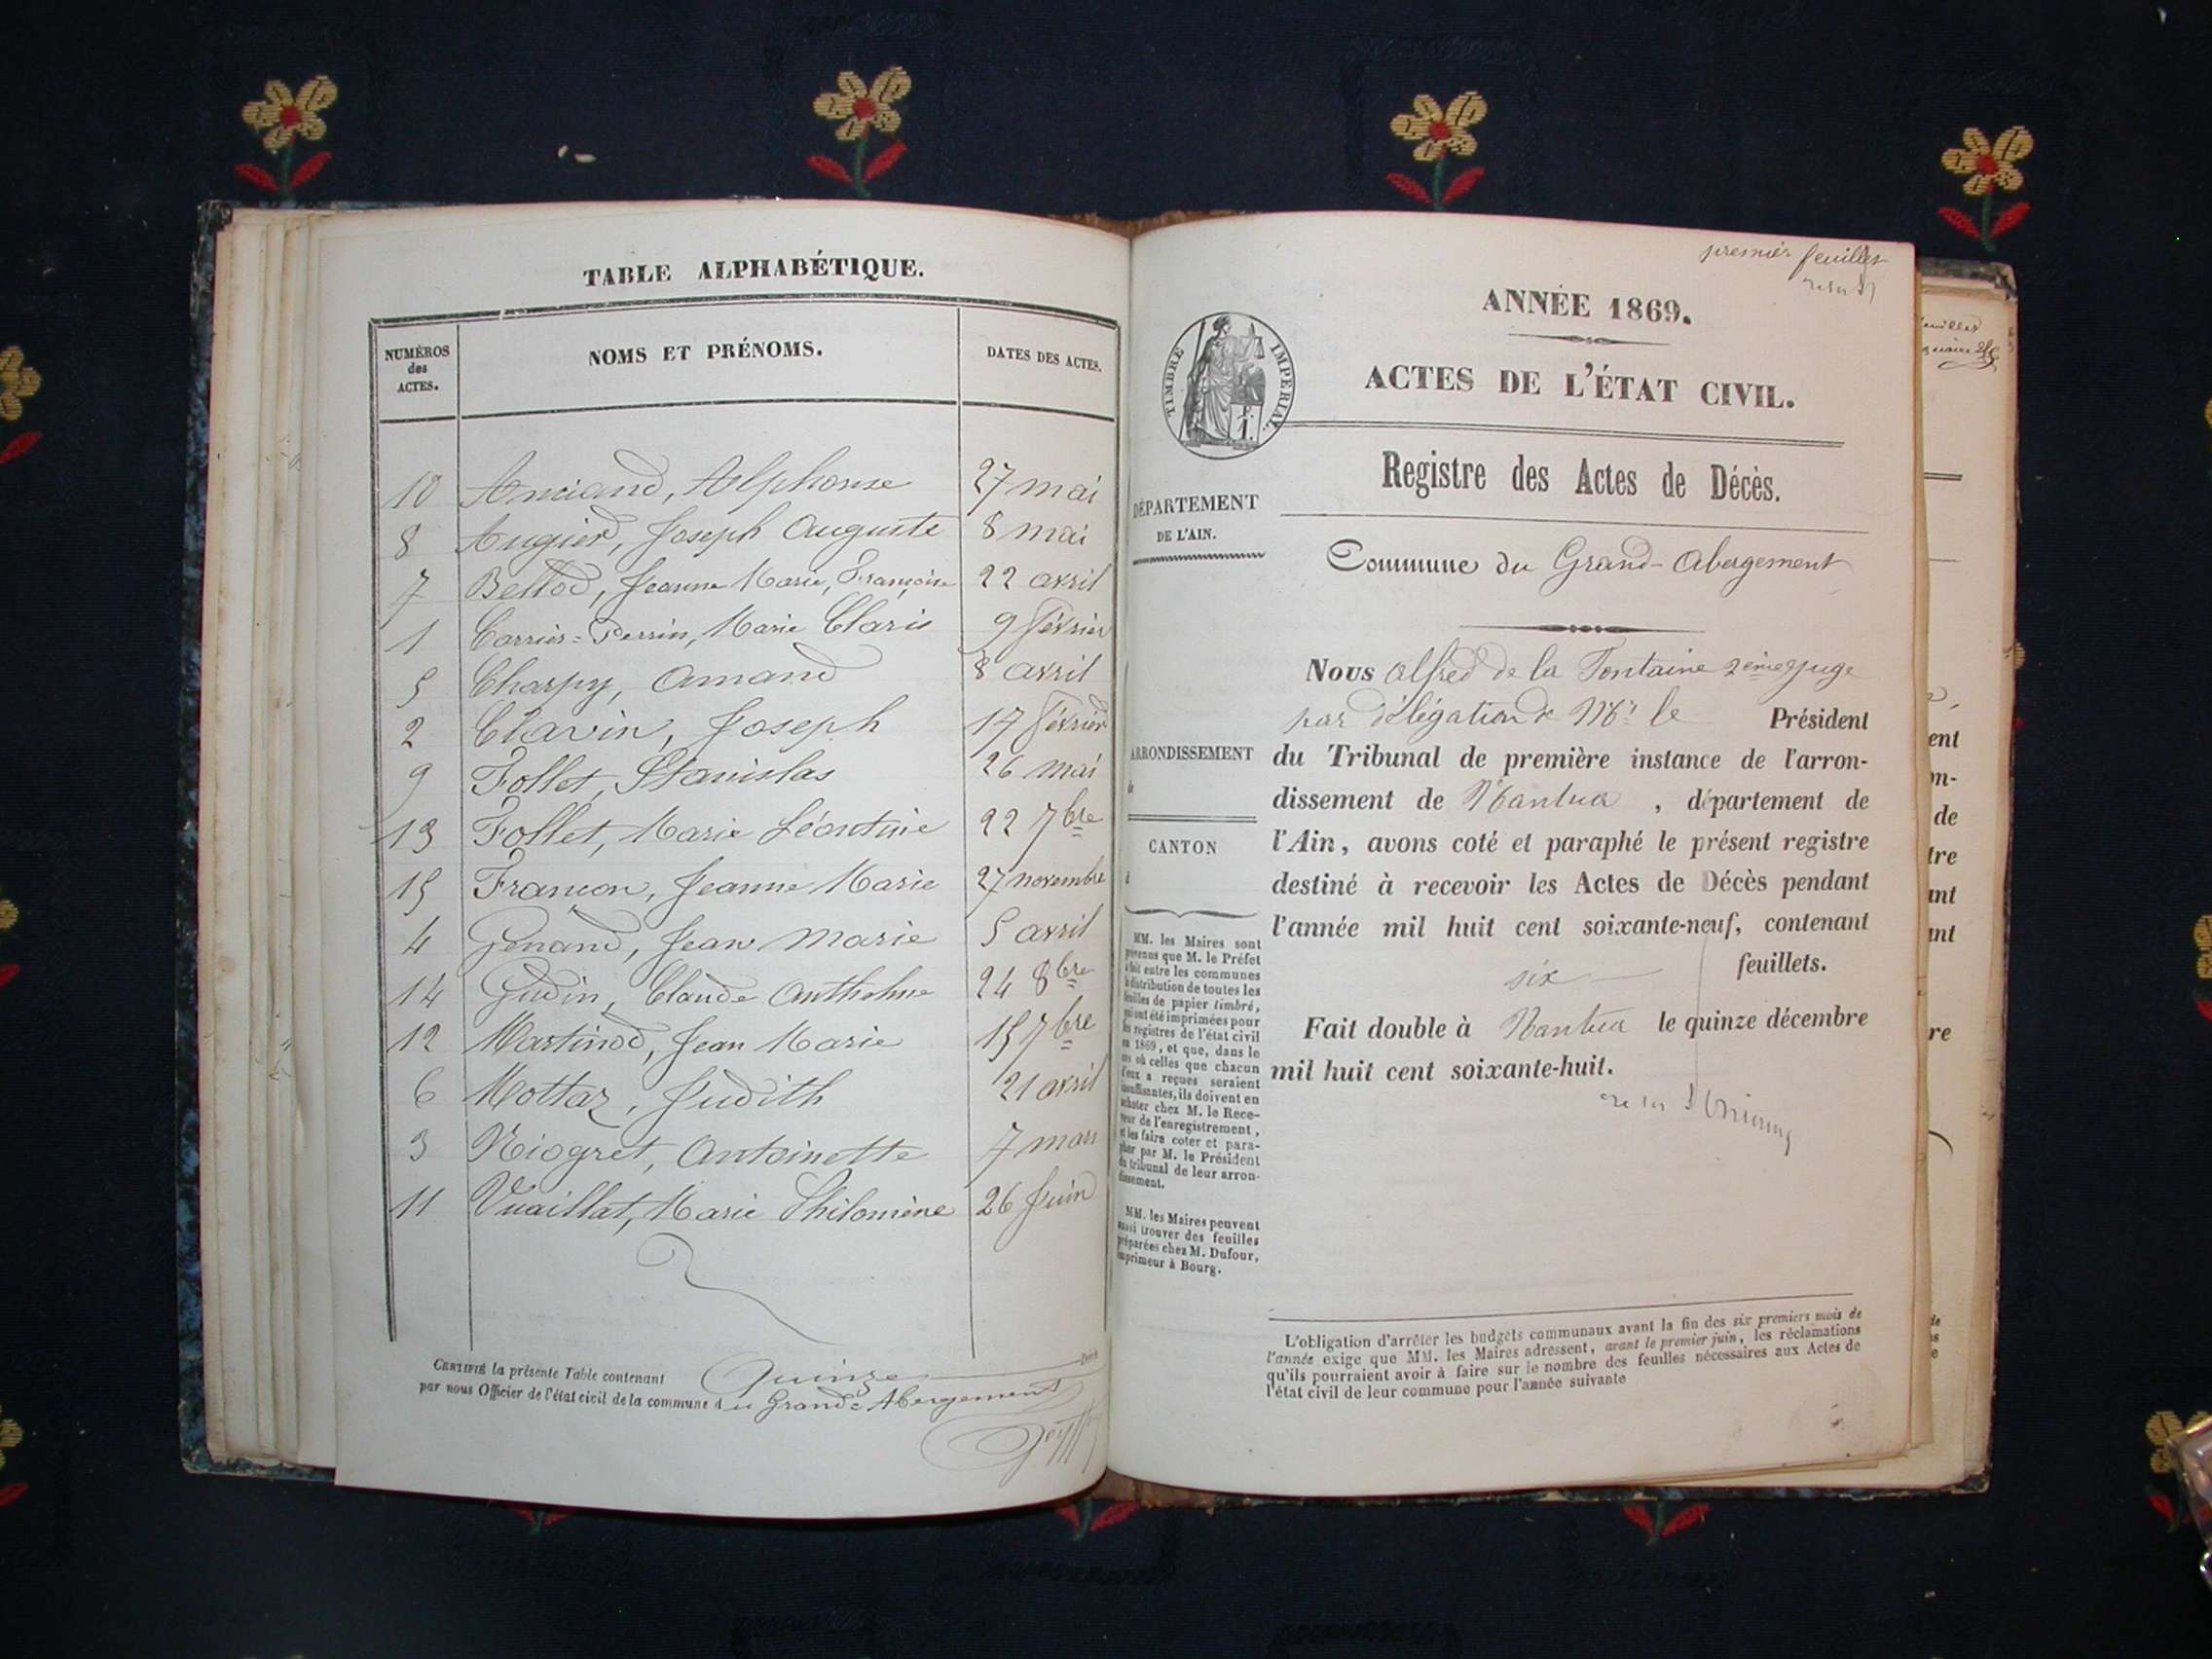 TABLE ALPHABÉTIQUE.
NUMÉROS
des
ACTES.
NOMS ET PRÉNOMS.
DATES DES ACTES.
10 Anciand, Alphonse 27 mai
8 Augier, Joseph Auguste 8 mai
7 Bellod, Jeanne Marie, Françoise 22 avril
1 Carrier=Perrin, Marie Claris 9 février
5 Charpy, Amand 8 avril
2 Clavin, Joseph 17 février
9 Follet, Stanislas 26 mai
13 Follet, Marie Léontine 22 7bre
15 Francon, Jeanne Marie 27 novembre
4 Genand, Jean Marie 5 avril
14 Gudin, Claude Anthelme 24 8bre
12 Martinod, Jean Marie 15 7bre
6 Mottaz, Judith 21 avril
3 Niogret, Antoinette 7 mars
11 Vuaillat, Marie Philomène 26 Juin
CERTIFIÉ la présente Table contenant Quinze
par nous Officier de l'état civil de la commune du Grand=Abergement
premier feuillet
ANNÉE 1869.
TIMBRE IMPERIAL
ACTES DE L'ÉTAT CIVIL.
Registre des Actes de Décès.
DÉPARTEMENT
DE L'AIN.
Commune du Grand-Abergement
Nous Alfred de la Fontaine 2ème juge
par délégation de Mr le Président
du Tribunal de première instance de l'arron-
dissement de Nantua, département de
l'Ain, avons coté et paraphé le présent registre
destiné à recevoir les Actes de Décès pendant
l'année mil huit cent soixante-neuf, contenant
six feuillets.
Fait double à Nantua le quinze décembre
mil huit cent soixante-huit.
ARRONDISSEMENT
CANTON
MM. les Maires sont
prévenus que M. le Préfet
a fait entre les communes
la distribution de toutes les
feuilles de papier timbré,
qui ont été imprimées pour
les registres de l'état civil
en 1869, et que, dans le
cas où celles que chacun
d'eux a reçues seraient
insuffisantes, ils doivent en
acheter chez M. le Rece-
veur de l'enregistrement,
et les faire coter et para-
pher par M. le Président
du tribunal de leur arron-
dissement.
MM. les Maires peuvent
aussi trouver des feuilles
préparées chez M. Dufour,
imprimeur à Bourg.
L'obligation d'arrêter les budgets communaux avant la fin des six premiers mois de
l'année exige que MM. les Maires adressent, avant le premier juin, les réclamations
qu'ils pourraient avoir à faire sur le nombre des feuilles nécessaires aux Actes de
l'état civil de leur commune pour l'année suivante